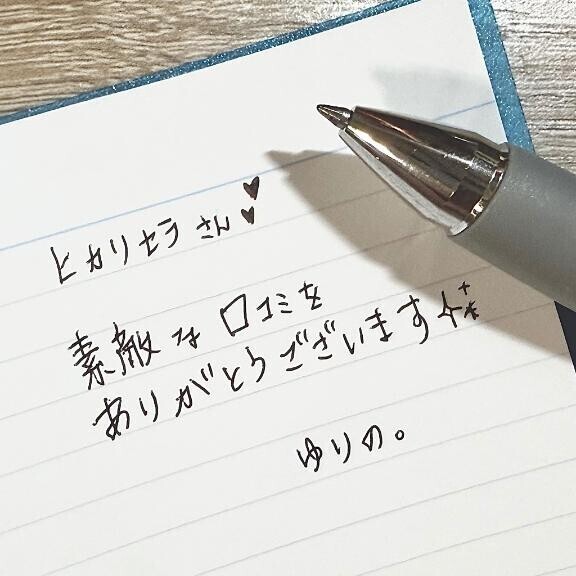 ヒカリセラさん♥♥
素敵な口コミを
ありがとうございます✨
ゆりの。